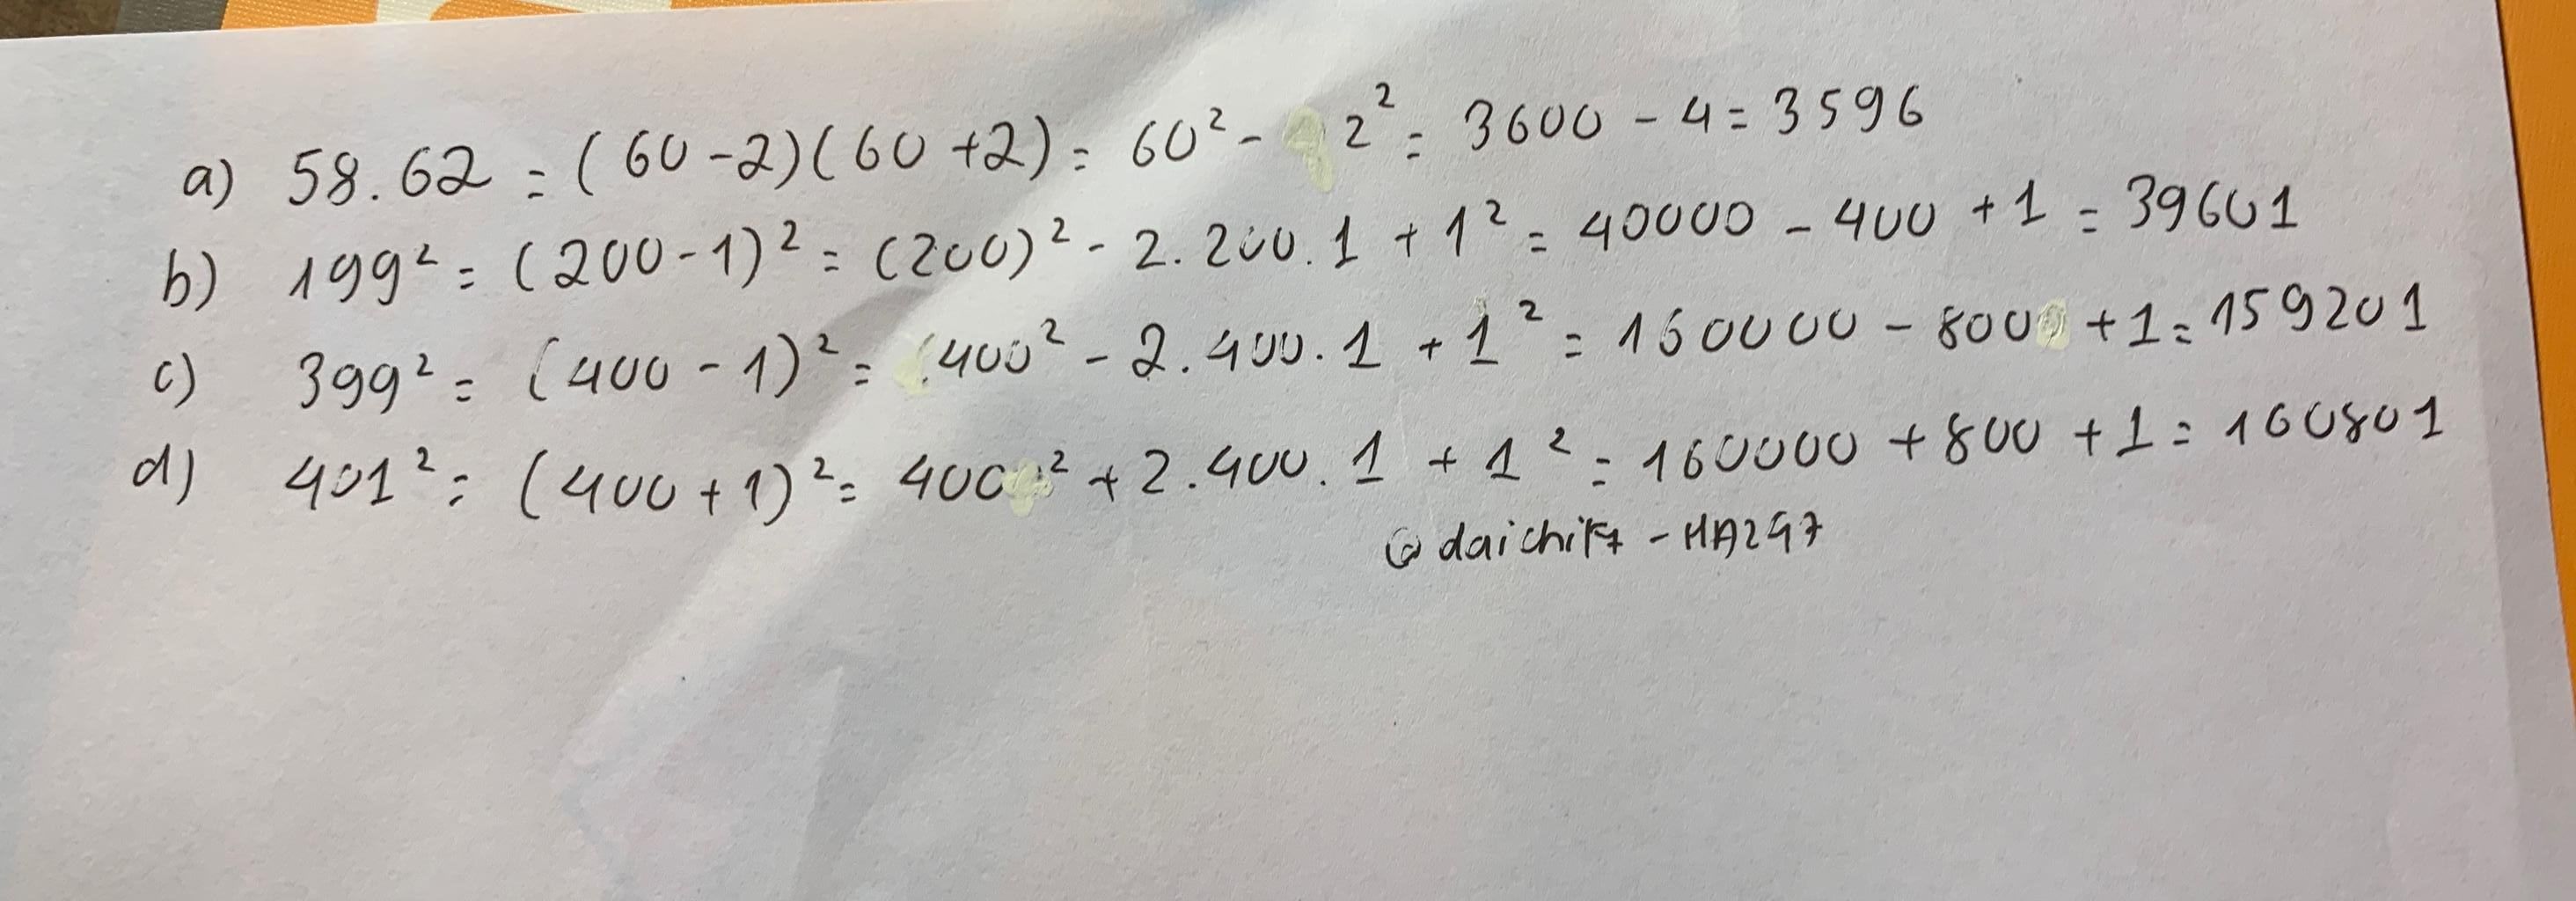 a) 58.62 = (60-2)(60+2) = 60² - 2² = 3600 - 4 = 3596
b) 199² = (200-1)² = (200)² - 2.200.1 + 1² = 40000 - 400 + 1 = 39601
c) 399² = (400-1)² = 400² - 2.400.1 + 1² = 160000 - 800 + 1 = 159201
d) 401² = (400+1)² = 400² + 2.400.1 + 1² = 160000 + 800 + 1 = 160801